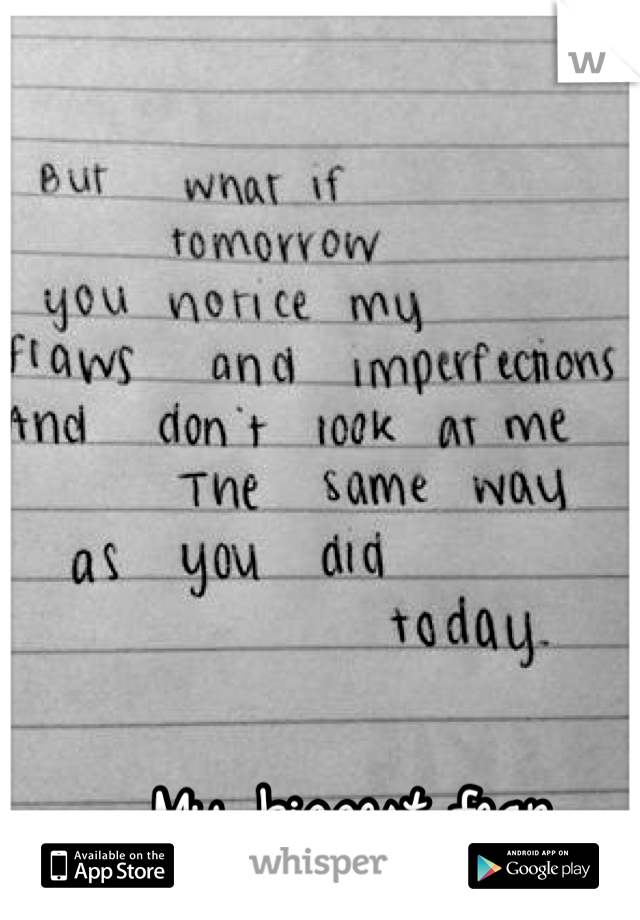 W
But what if
tomorrow
you notice my
flaws and imperfections
And don't look at me
The same way
as you did
today.
My biggest fear
Available on the
App Store
whisper
ANDROID APP ON
Google play